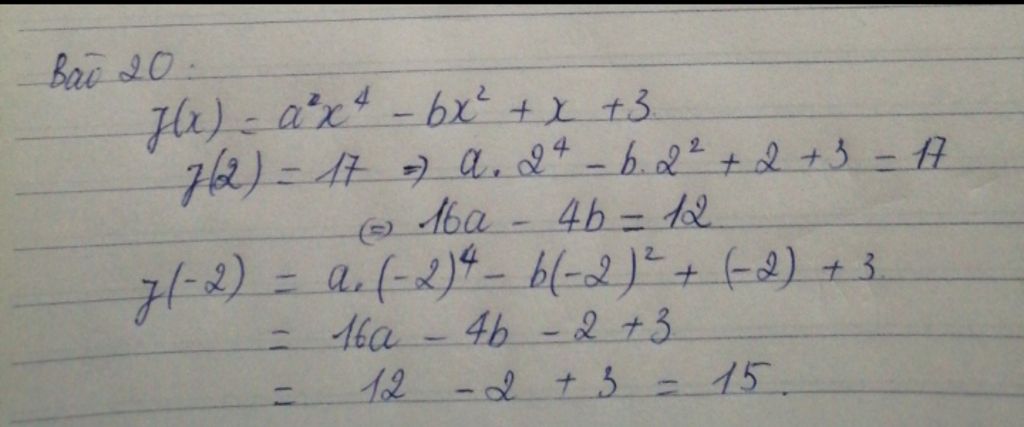 Bài 20:
f(x) = a²x⁴ - bx² + x + 3
f(2) = 17 => a.2⁴ - b.2² + 2 + 3 = 17
(=) 16a - 4b = 12
f(-2) = a.(-2)⁴ - b(-2)² + (-2) + 3
= 16a - 4b - 2 + 3
= 12 - 2 + 3 = 15.